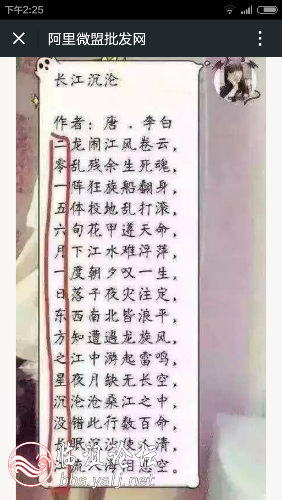 下午2:25
阿里微盟批发网
长江沉沦
作者：唐．李白
二龙闹江风卷云，
零乱残余生死魂，
一阵狂旋船翻身，
五体投地乱打滚，
六旬花甲遵天命，
月下江水难浮萍，
一度朝夕叹一生，
日落子夜灾注定，
东西南北皆浪平，
方知遭遇龙旋风，
之江中游起雷鸣，
星夜月缺无长空，
沉沦沧桑江之中，
没错此行数百命，
长眠沉沙使水清，
江流 海泪 空。
bbs.yalvji.net